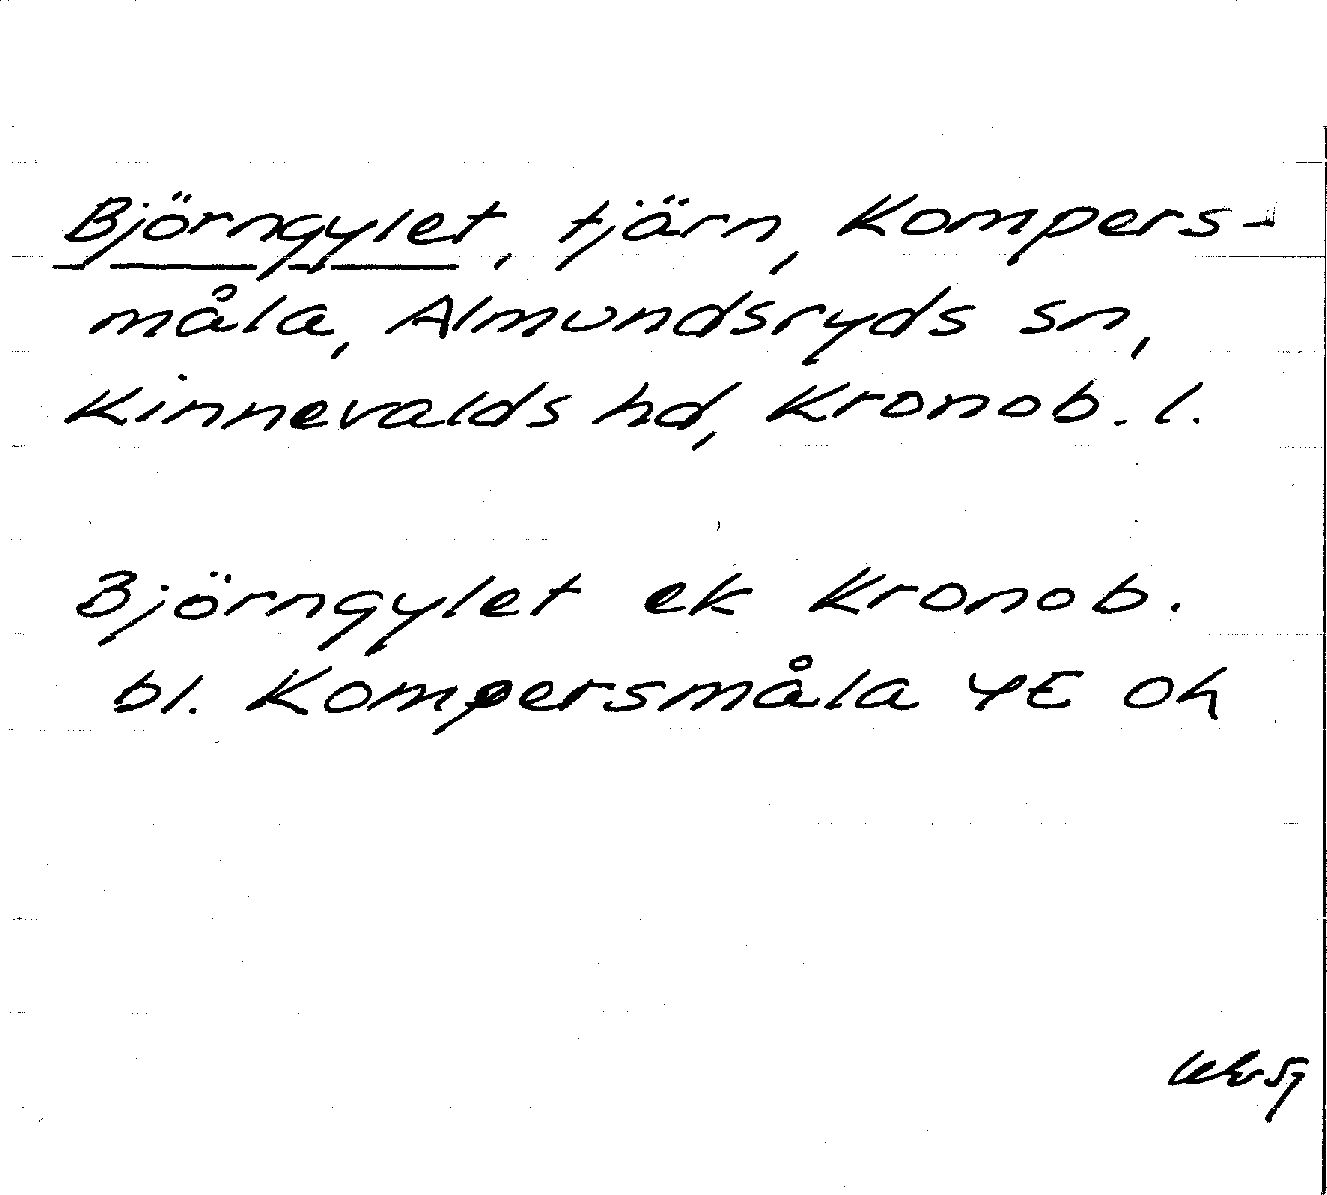 Björngylet, tjärn, Kompers-
måla, Almundsryds sn,
Kinnevalds hd, Kronob. l.
Björngylet ek Kronob.
bl. Kompersmåla 4E Oh